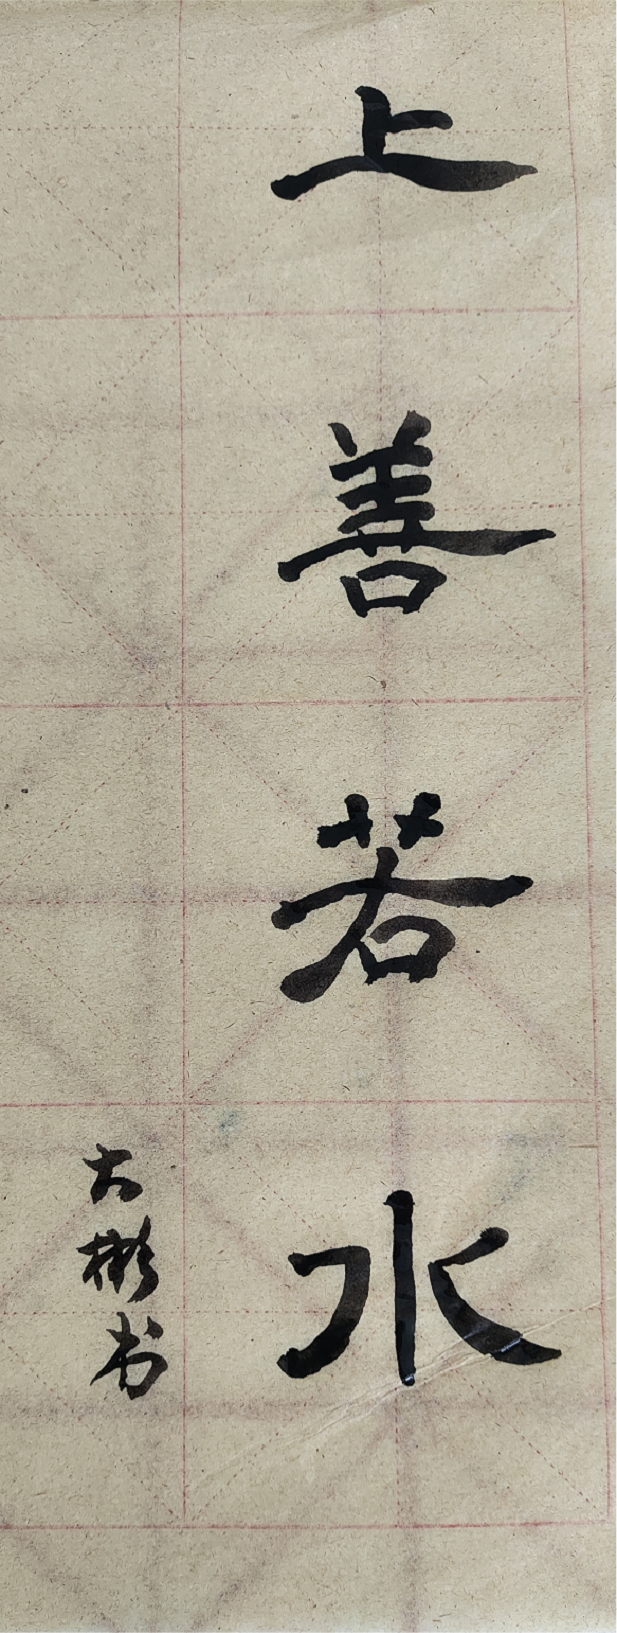 上善若水
大彬书